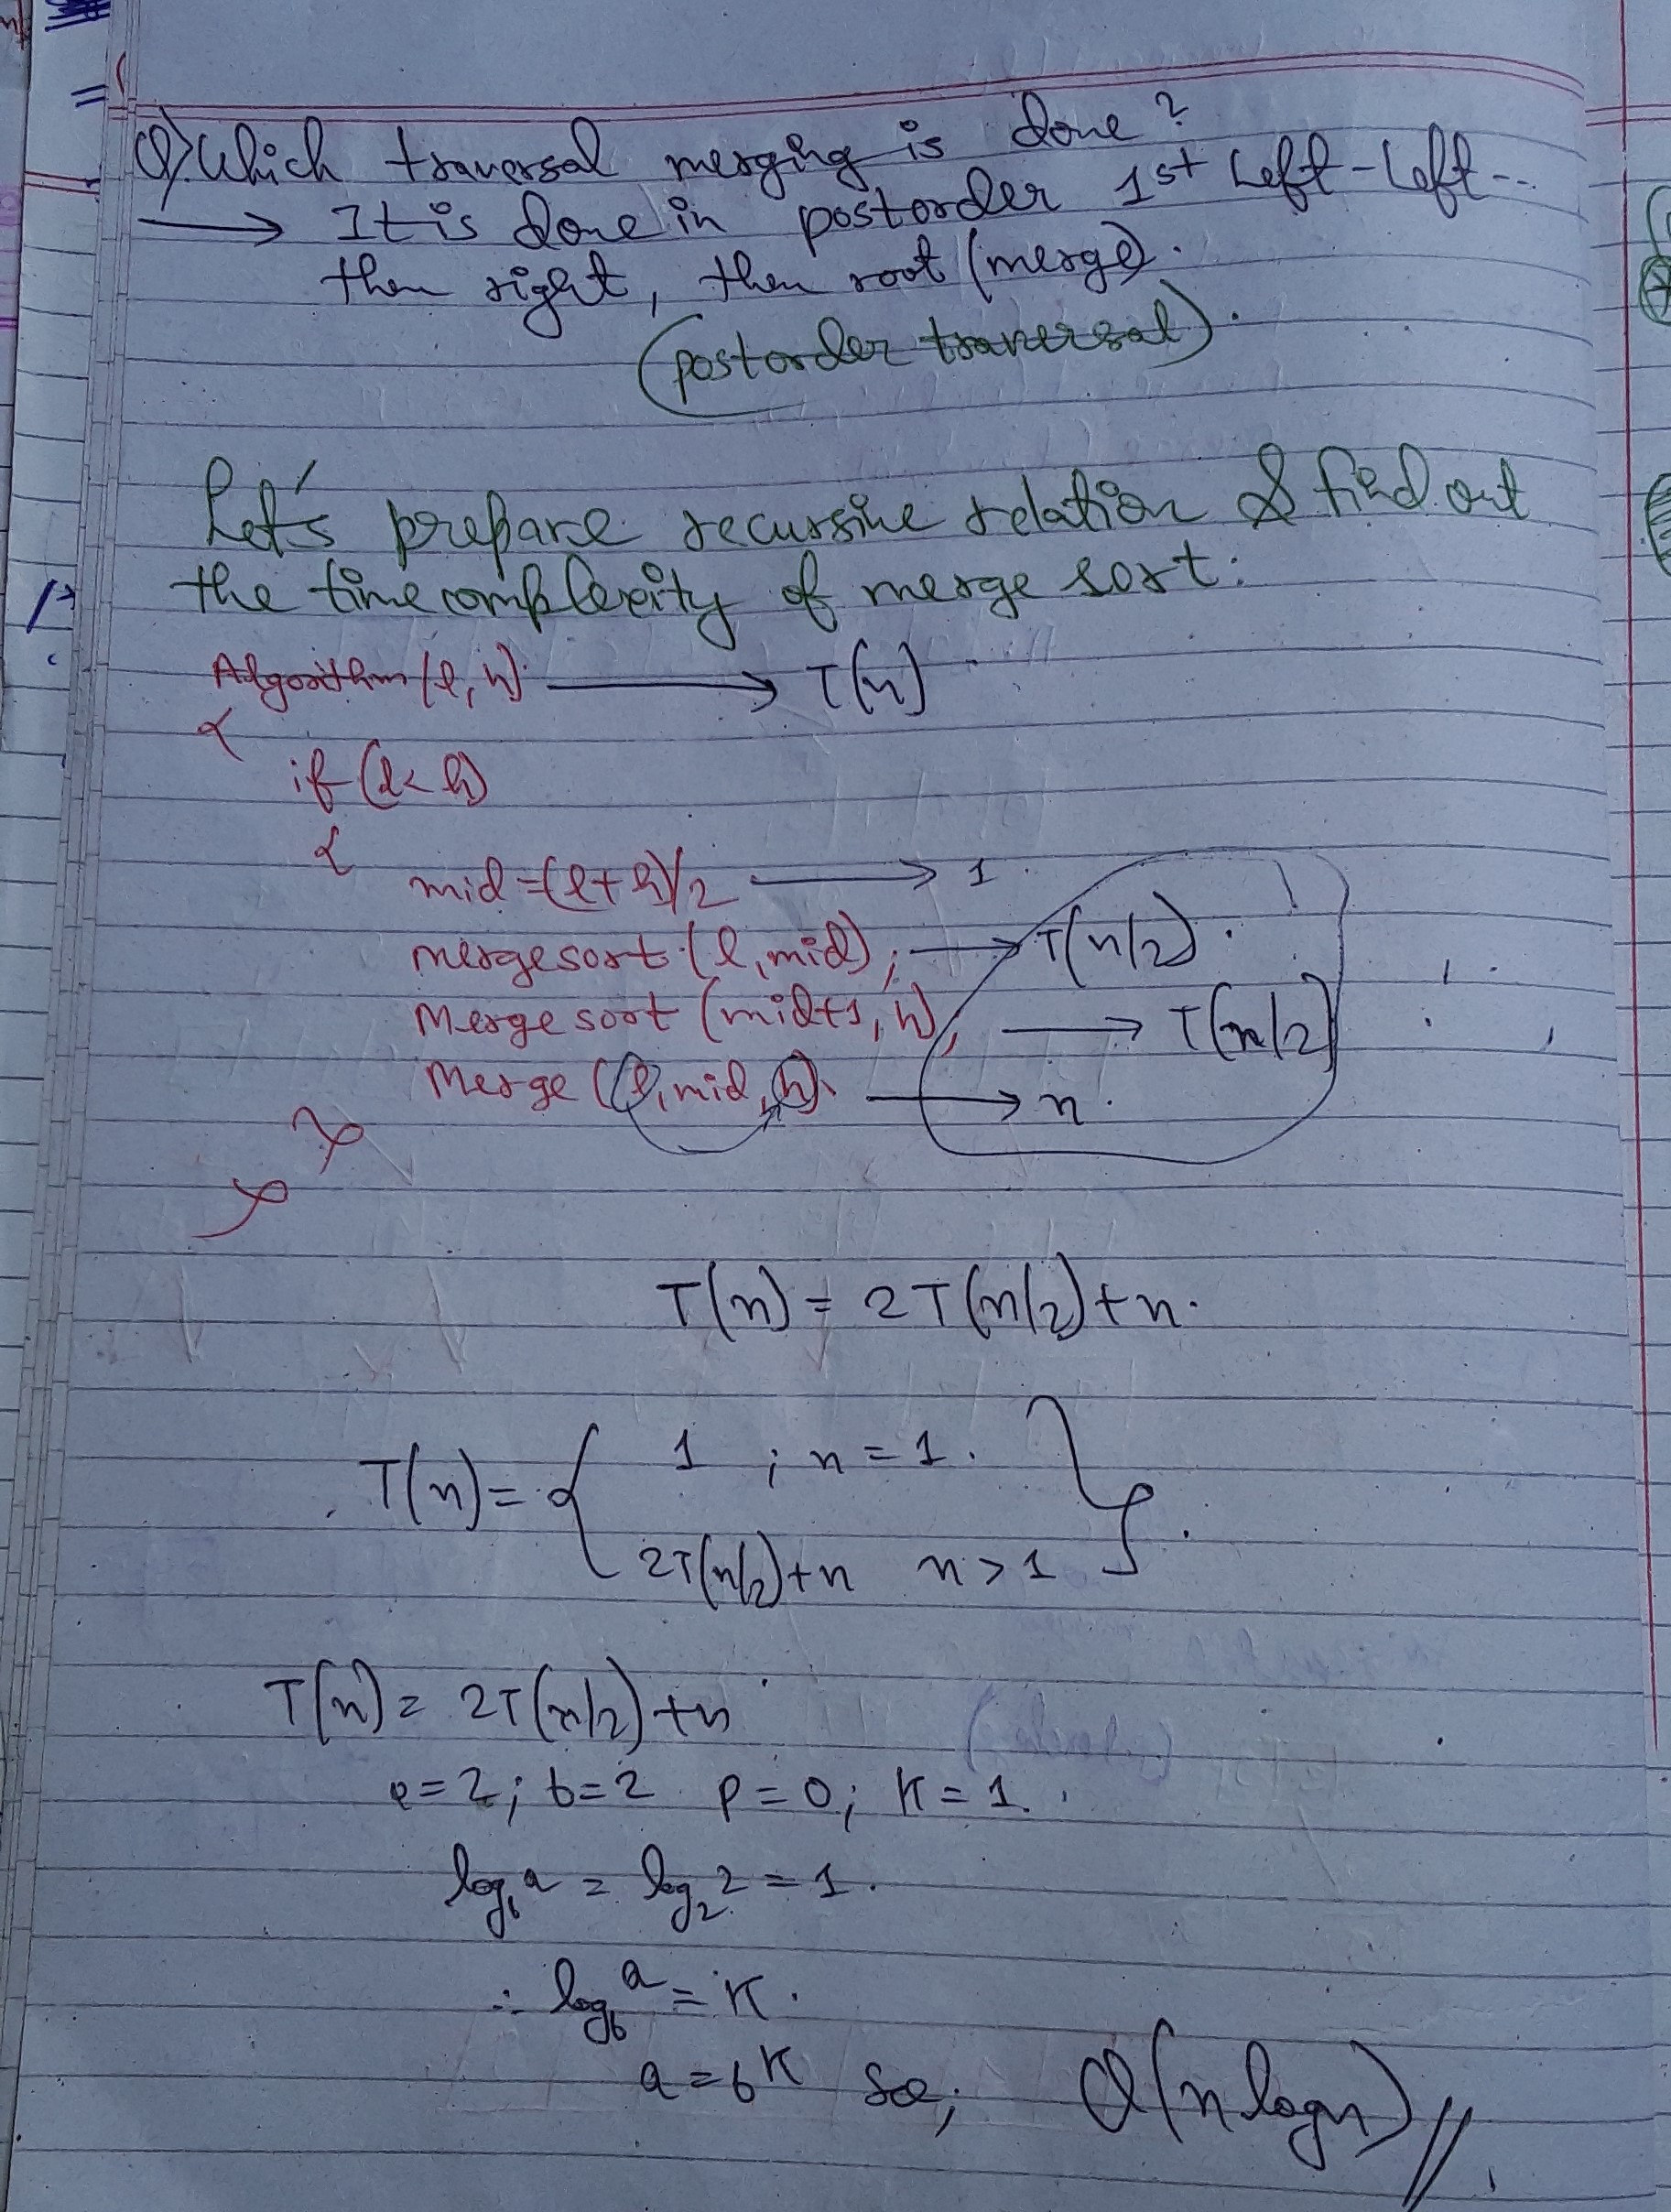 Q) Which traversal merging is done?
→ It is done in postorder 1st Left-Left--
then right, then root (merge).
(postorder traversal).
Let's prepare recursive relation & find out
the time complexity of merge sort:
Algorithm (l, h) → T(n)
{
if (l < h)
{
mid = (l+h)/2 → 1.
mergesort (l, mid); → T(n/2).
Merge sort (mid+1, h), → T(n/2)
Merge (l, mid, h). → n.
}
}
T(n) = 2T(n/2)+n.
T(n) = { 1 ; n = 1.
2T(n/2)+n n > 1 }.
T(n) = 2T(n/2)+n
a=2; b=2 p=0; K=1.
log_b a = log_2 2 = 1.
∴ log_b a = K.
a = b^K so, O(n logn)//